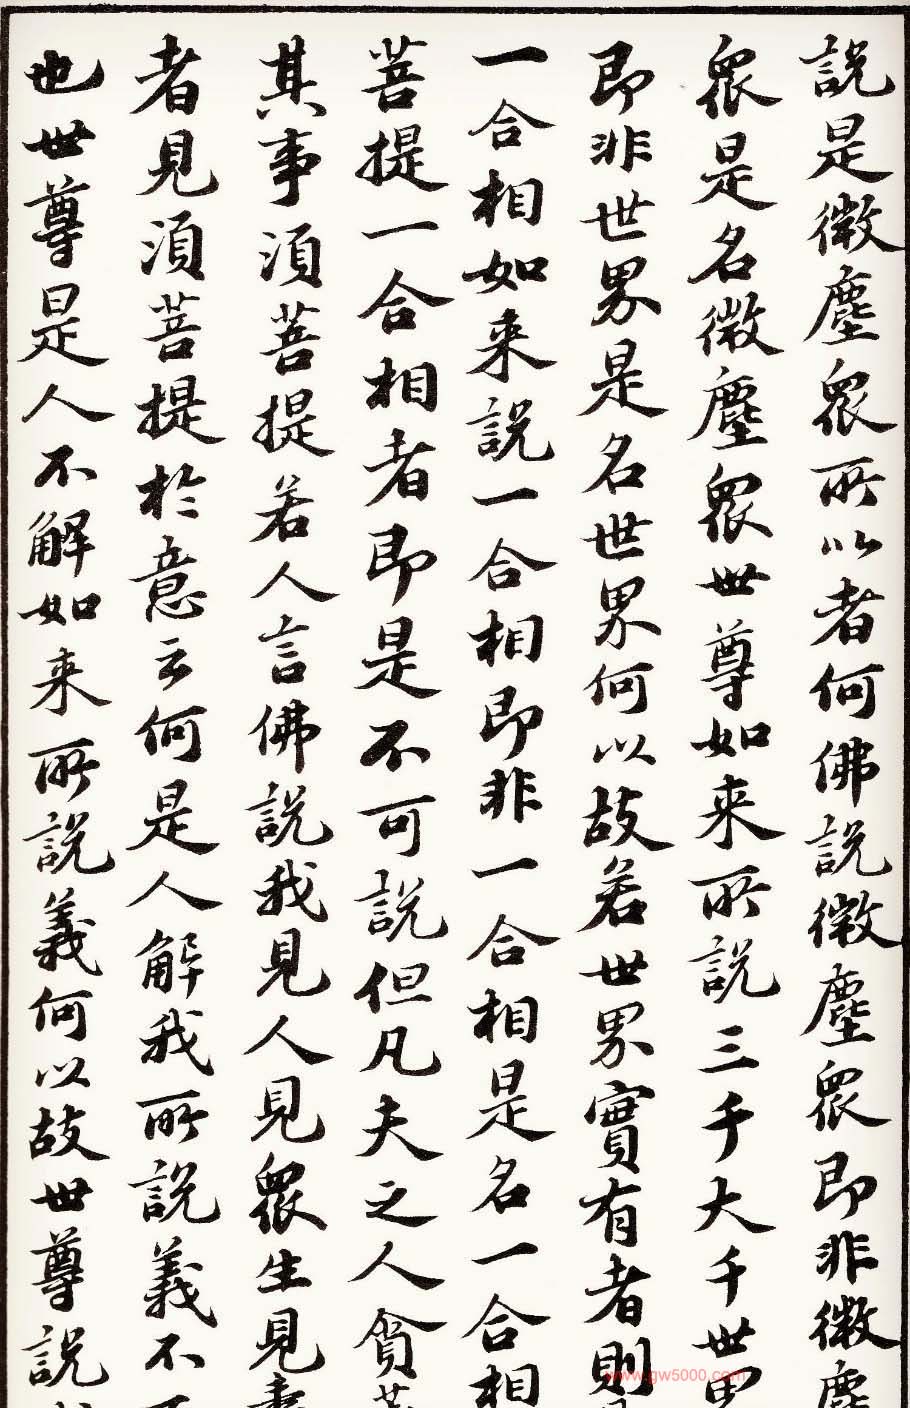 說是微塵眾所以者何佛說微塵眾即非微塵
眾是名微塵眾世尊如來所說三千大千世界
即非世界是名世界何以故若世界實有者則
一合相如來說一合相即非一合相是名一合相
菩提一合相者即是不可說但凡夫之人貪著
其事須菩提若人言佛說我見人見眾生見壽
者見須菩提於意云何是人解我所說義不
也世尊是人不解如來所說義何以故世尊說
www.gw5000.com